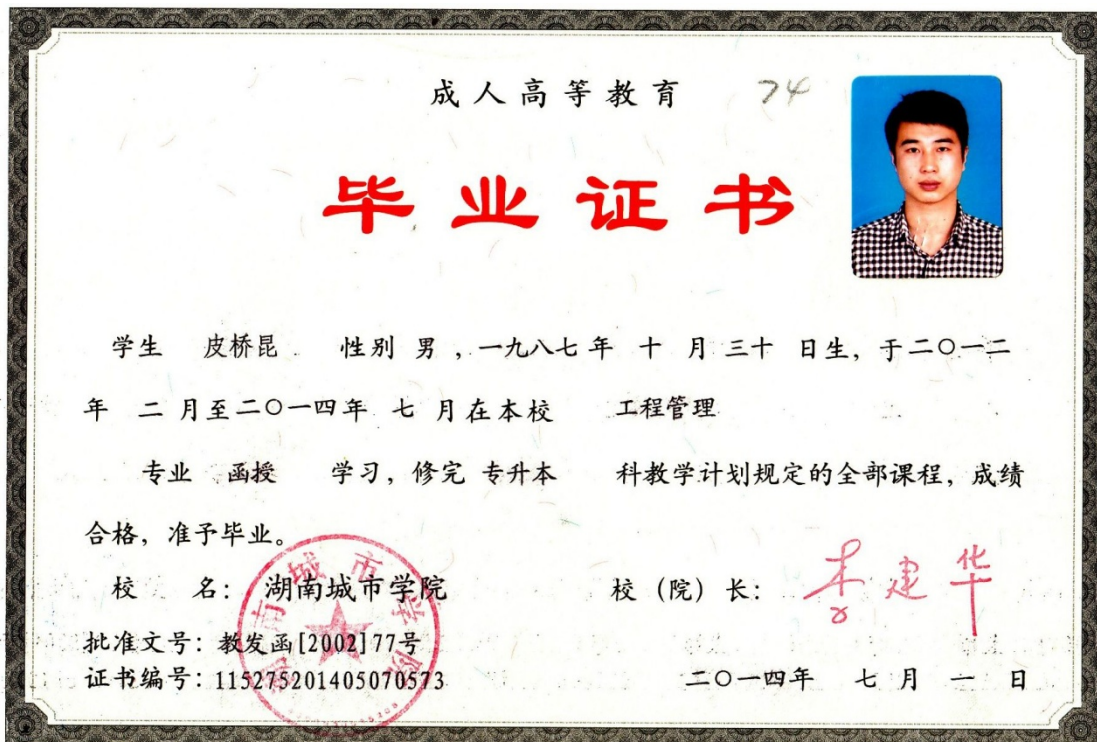 成人高等教育 74
毕业证书
学生 皮桥昆 性别 男，一九八七年 十 月 三十 日生，于二〇一二
年 二 月至二〇一四年 七 月在本校 工程管理
专业 函授 学习，修完 专升本 科教学计划规定的全部课程，成绩
合格，准予毕业。
校 名：湖南城市学院 校（院）长：李建华
湖南城市学院
批准文号：教发函[2002]77号
证书编号：115275201405070573 二〇一四年 七 月 一 日